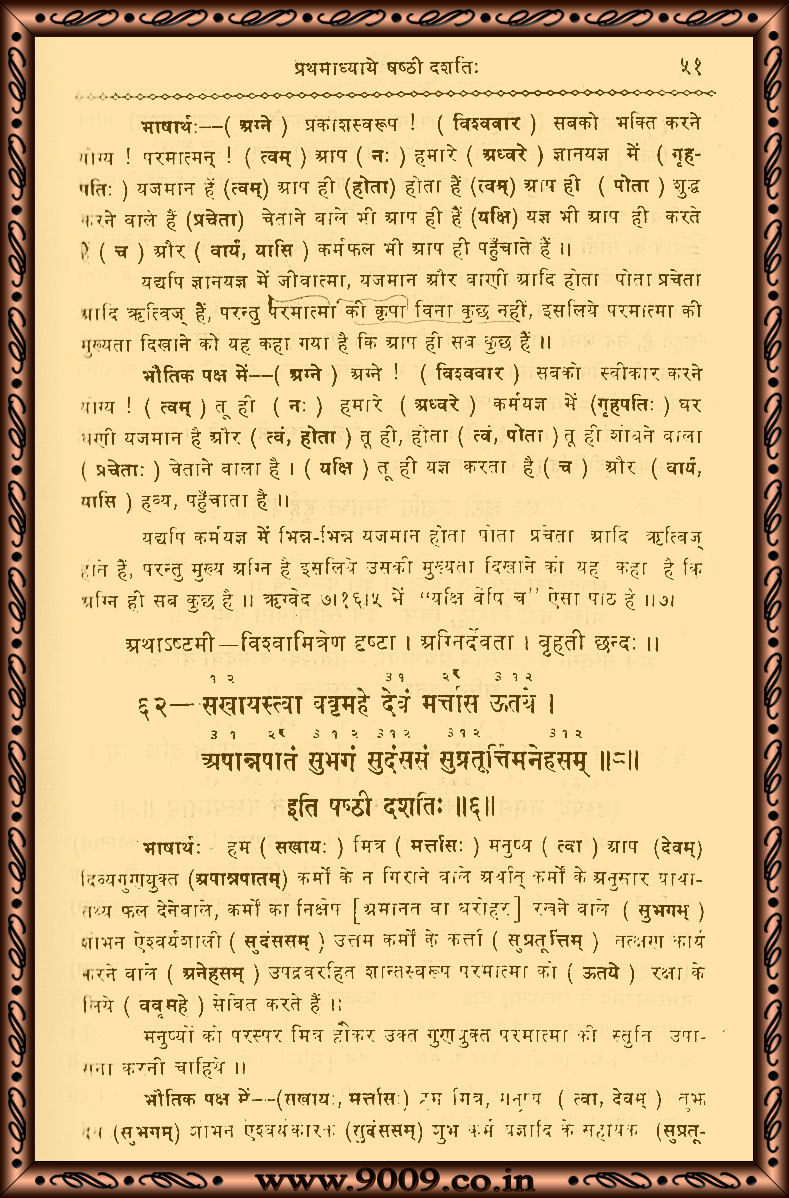 प्रथमाध्याये षष्ठी दशतिः ५१
भाषार्थः--( अग्ने ) प्रकाशस्वरूप ! ( विश्ववार ) सबको भक्ति करने
योग्य ! परमात्मन् ! ( त्वम् ) आप ( नः ) हमारे ( अध्वरे ) ज्ञानयज्ञ में ( गृह-
पतिः ) यजमान हैं (त्वम्) आप ही (होता) होता हैं (त्वम्) आप ही ( पोता ) शुद्ध
करने वाले हैं (प्रचेता) चेताने वाले भी आप ही हैं (यक्षि) यज्ञ भी आप ही करते
हैं ( च ) और ( वार्यं, यासि ) कर्मफल भी आप ही पहुँचाते हैं ।।
यद्यपि ज्ञानयज्ञ में जीवात्मा, यजमान और वाणी आदि होता पोता प्रचेता
आदि ऋत्विज् हैं, परन्तु परमात्मा की कृपा विना कुछ नहीं, इसलिये परमात्मा की
मुख्यता दिखाने को यह कहा गया है कि आप ही सब कुछ हैं ।।
भौतिक पक्ष में--( अग्ने ) अग्ने ! ( विश्ववार ) सबको स्वीकार करने
योग्य ! ( त्वम् ) तू ही ( नः ) हमारे ( अध्वरे ) कर्मयज्ञ में (गृहपतिः ) घर
धणी यजमान है और ( त्वं, होता ) तू ही, होता ( त्वं, पोता ) तू ही शोधने वाला
( प्रचेताः ) चेताने वाला है । ( यक्षि ) तू ही यज्ञ करता है ( च ) और ( वार्यं,
यासि ) हव्य, पहुँचाता है ।।
यद्यपि कर्मयज्ञ में भिन्न-भिन्न यजमान होता पोता प्रचेता आदि ऋत्विज्
होते हैं, परन्तु मुख्य अग्नि है इसलिये उसकी मुख्यता दिखाने को यह कहा है कि
अग्नि ही सब कुछ है ।। ऋग्वेद ७।१६।५ में "यक्षि वेषि च" ऐसा पाठ है ।।७।
अथाऽष्टमी—विश्वामित्रेण दृष्टा । अग्निर्देवता । बृहती छन्दः ।।
१ २ ३ १ २र ३ १ २
६२—सखायस्त्वा ववृमहे देवं मर्त्तास ऊतये ।
३ १ २र ३ १ २ ३१२ ३१२ ३१२
अपान्नपातं सुभगं सुदंससं सुप्रतूर्त्तिमनेहसम् ॥८॥
इति षष्ठी दशतिः ॥६॥
भाषार्थः हम ( सखायः ) मित्र ( मर्त्तासः ) मनुष्य ( त्वा ) आप (देवम्)
दिव्यगुणयुक्त (अपान्नपातम्) कर्मों के न गिराने वाले अर्थात् कर्मों के अनुसार याथा-
तथ्य फल देनेवाले, कर्मों का निक्षेप [अमानत वा धरोहर] रखने वाले ( सुभगम् )
शोभन ऐश्वर्यशाली ( सुदंससम् ) उत्तम कर्मों के कर्त्ता ( सुप्रतूर्त्तिम् ) तत्क्षण कार्य
करने वाले ( अनेहसम् ) उपद्रवरहित शान्तस्वरूप परमात्मा को ( ऊतये ) रक्षा के
लिये ( ववृमहे ) सेवित करते हैं ।।
मनुष्यों को परस्पर मित्र होकर उक्त गुणयुक्त परमात्मा की स्तुति उपा-
सना करनी चाहिये ।।
भौतिक पक्ष में--(सखायः, मर्त्तासः) हम मित्र, मनुष्य ( त्वा, देवम् ) तुझ
देव (सुभगम्) शोभन ऐश्वर्यकारक (सुदंससम्) शुभ कर्म यज्ञादि के सहायक (सुप्रतू-
www.9009.co.in